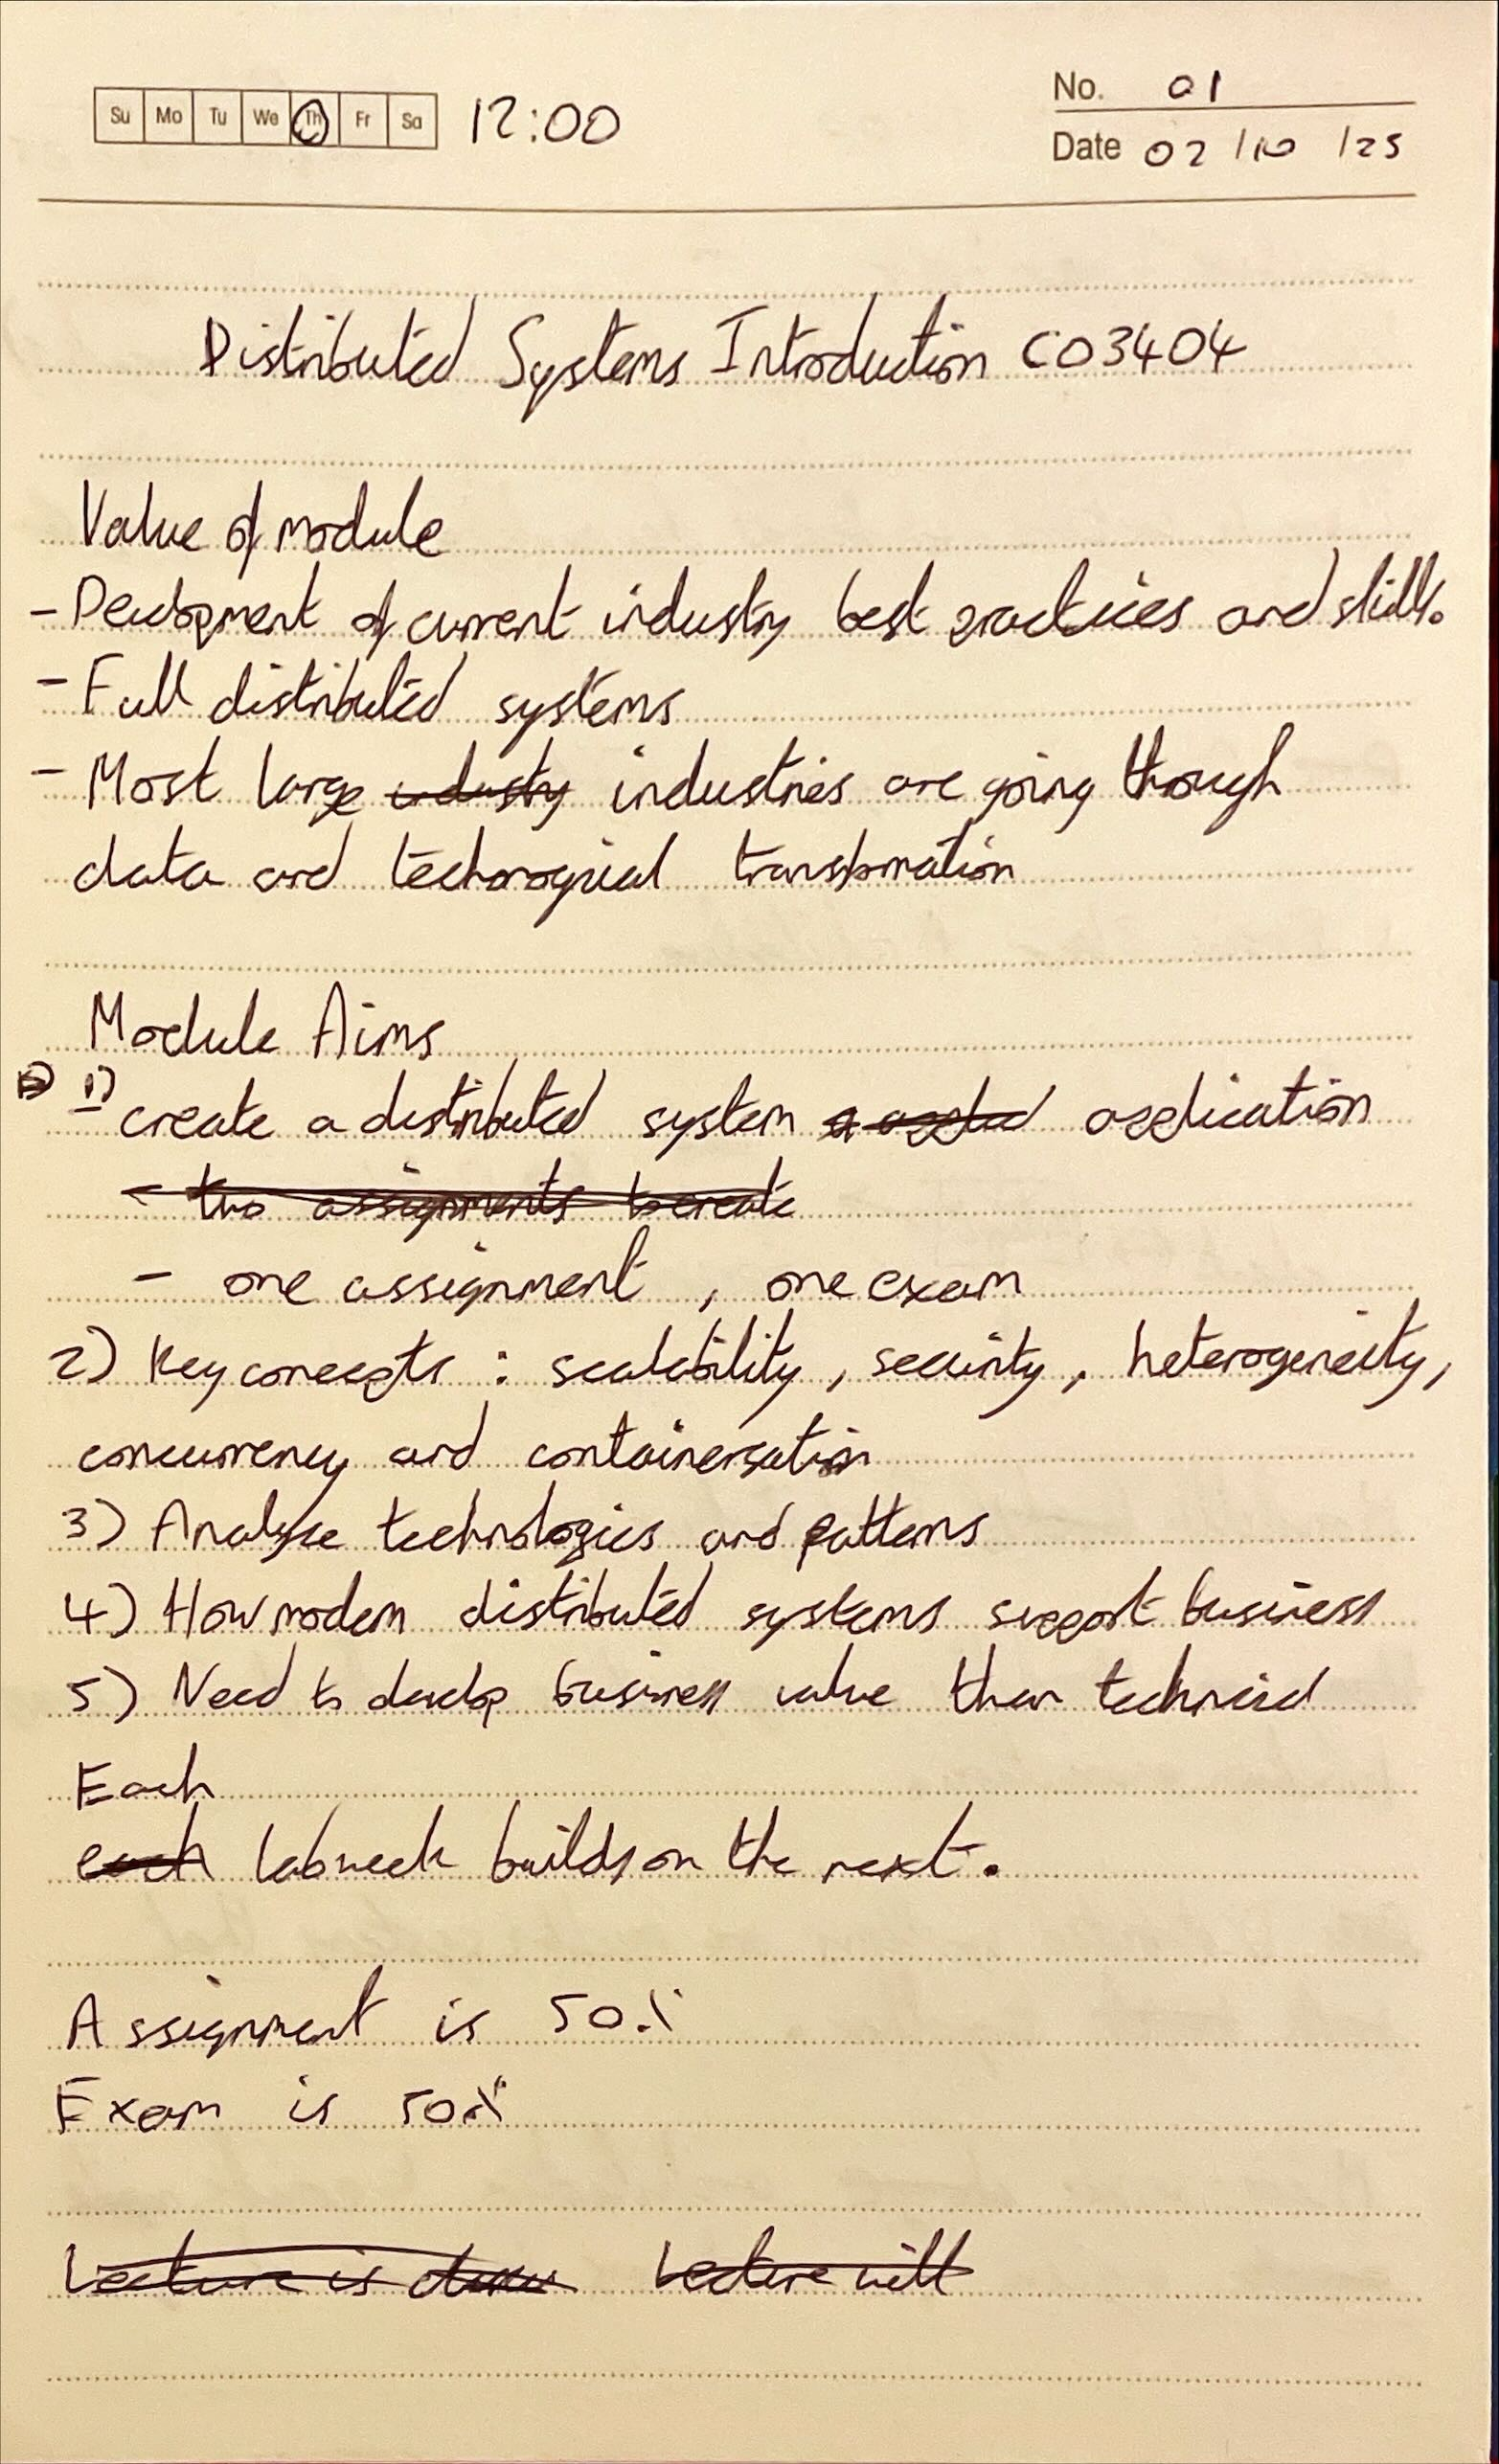 Su Mo Tu We Th Fr Sa 12:00
No. 01
Date 02/10/25
Distributed Systems Introduction CO3404
Value of module
- Development of current industry best practices and skills.
- Full distributed systems
- Most large industry industries are going through
data and technogical transformation
Module Aims
1) create a distributed system application
- two assignments to create
- one assignment, one exam
2) Key concepts : scalability, security, heterogeneity,
concurrency and containersation
3) Analyse technologies and patterns
4) How modern distributed systems support business
5) Need to develop business value than technical
Each
each lab week builds on the next.
Assignment is 50%
Exam is 50%
Lecture is Lecture will